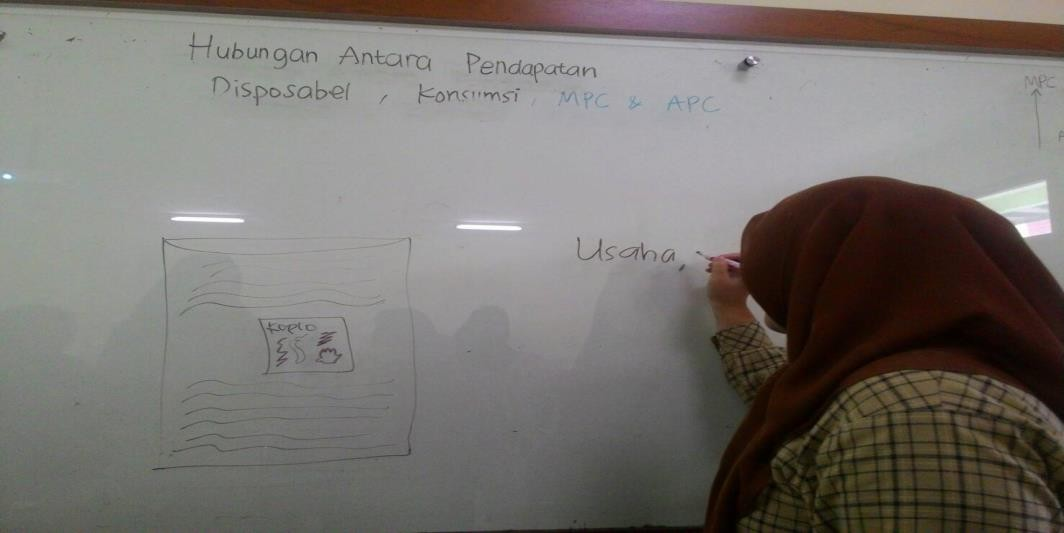 Hubungan Antara Pendapatan
Disposabel, Konsumsi, MPC & APC
MPC
Usaha,